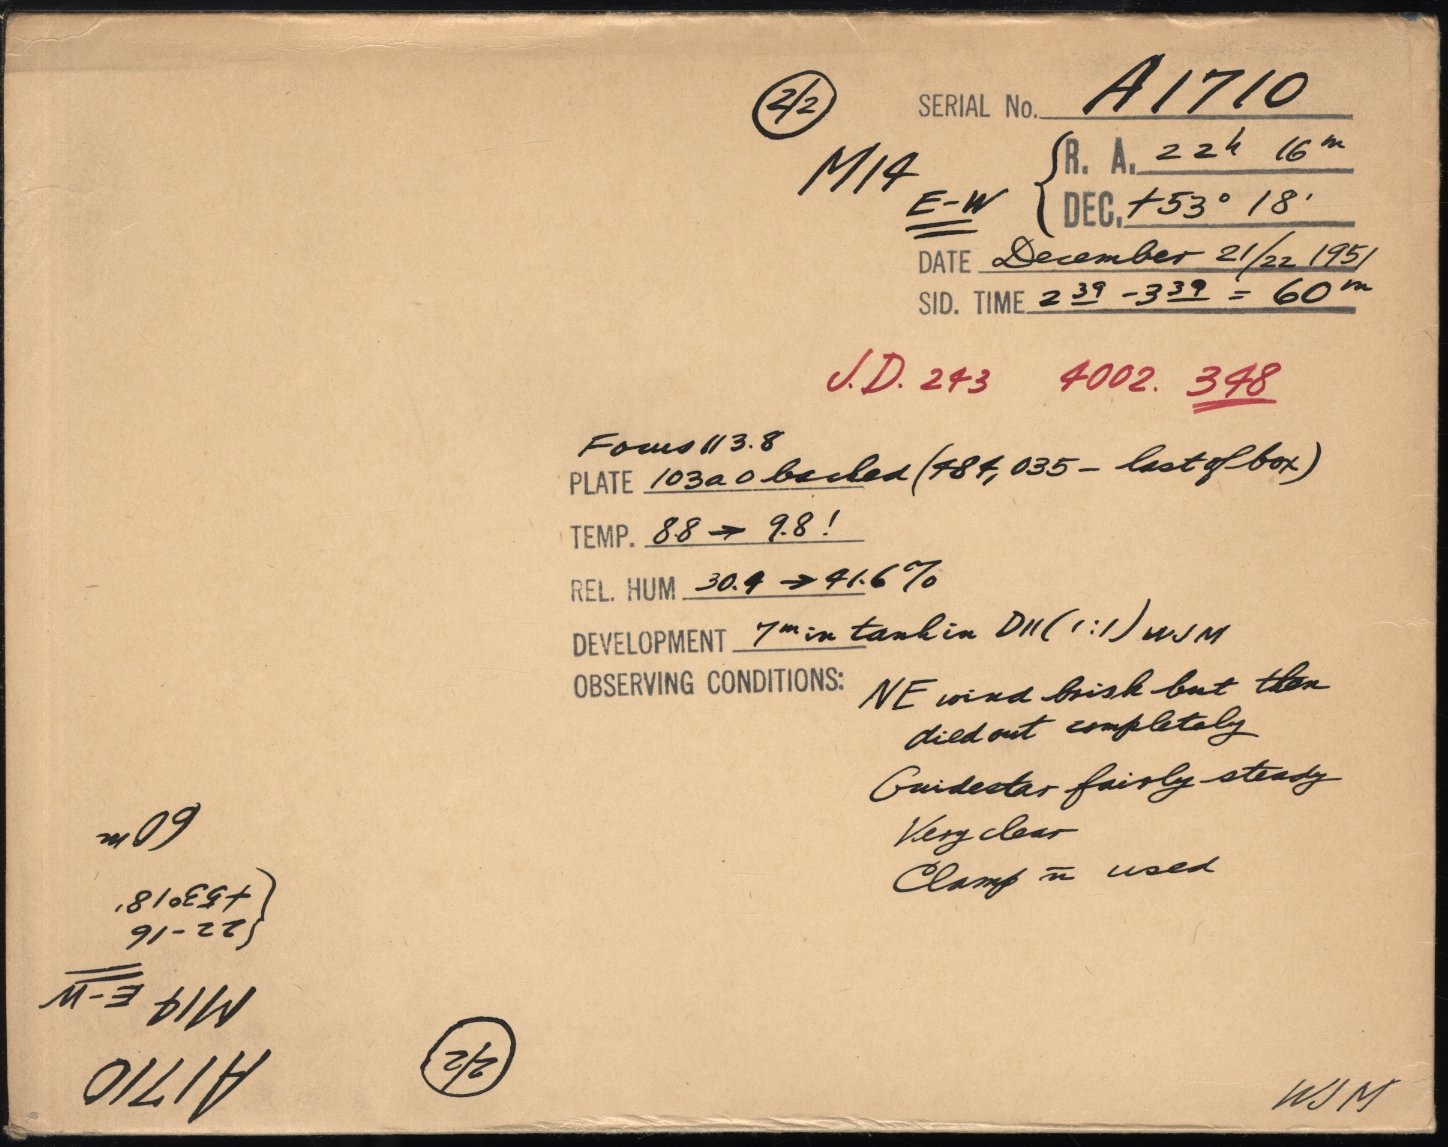 2/2
SERIAL No. A1710
M14
E-W
R. A. 22h 16m
DEC. +53° 18'
DATE December 21/22 1951
SID. TIME 2 39 - 3 39 = 60m
J.D. 243 4002. 348
Focus 113.8
PLATE 103a O backed (484, 035 - last of box)
TEMP. 8.8 → 9.8!
REL. HUM 30.4 → 41.6%
DEVELOPMENT 7m in tank in D11 (1:1) WJM
OBSERVING CONDITIONS: NE wind brisk but then
died out completely
Guidestar fairly steady
Very clear
Clamp n̄ used
A1710
M14 E-W
22-16
+53°18'
60m
2/2
WJM